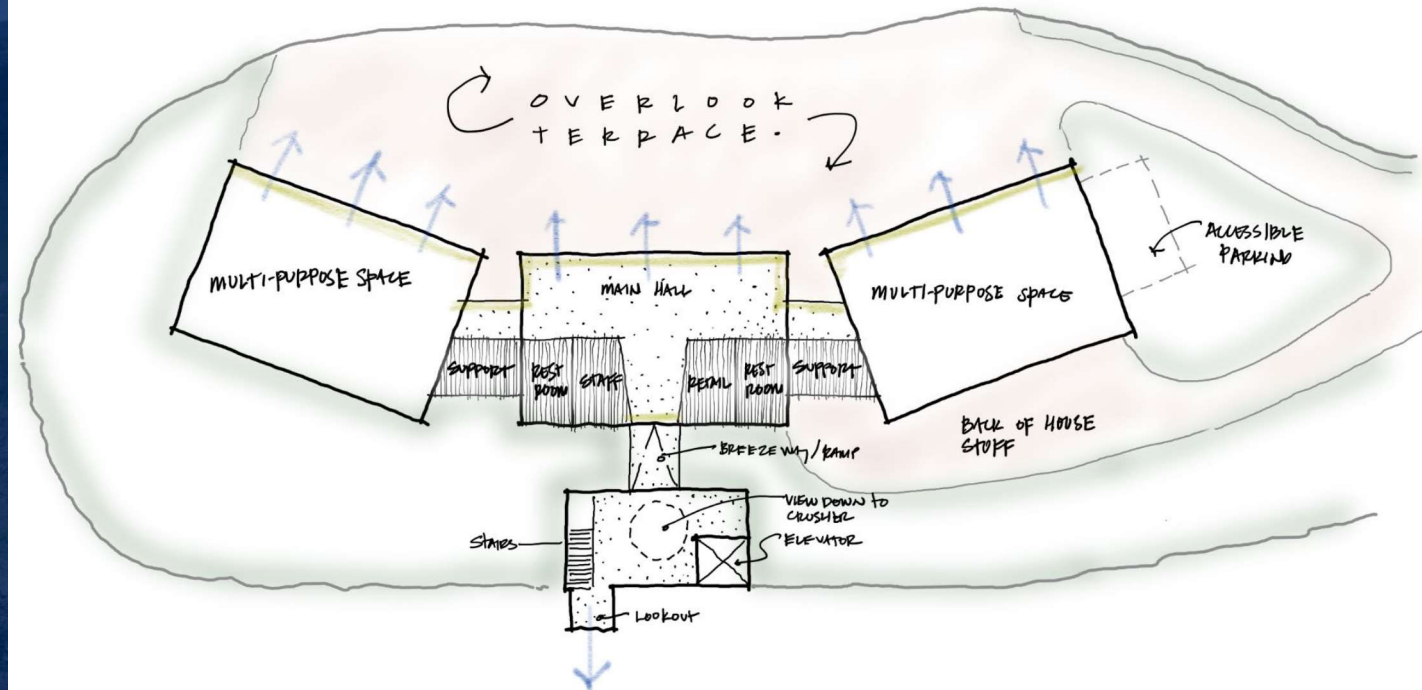 OVERLOOK
TERRACE.
MULTI-PURPOSE SPACE
MAIN HALL
MULTI-PURPOSE SPACE
ACCESSIBLE
PARKING
SUPPORT
REST
ROOM
STAFF
RETAIL
REST
ROOM
SUPPORT
BACK OF HOUSE
STUFF
BREEZEWAY/RAMP
VIEW DOWN TO
CRUSHER
STAIRS
ELEVATOR
LOOKOUT